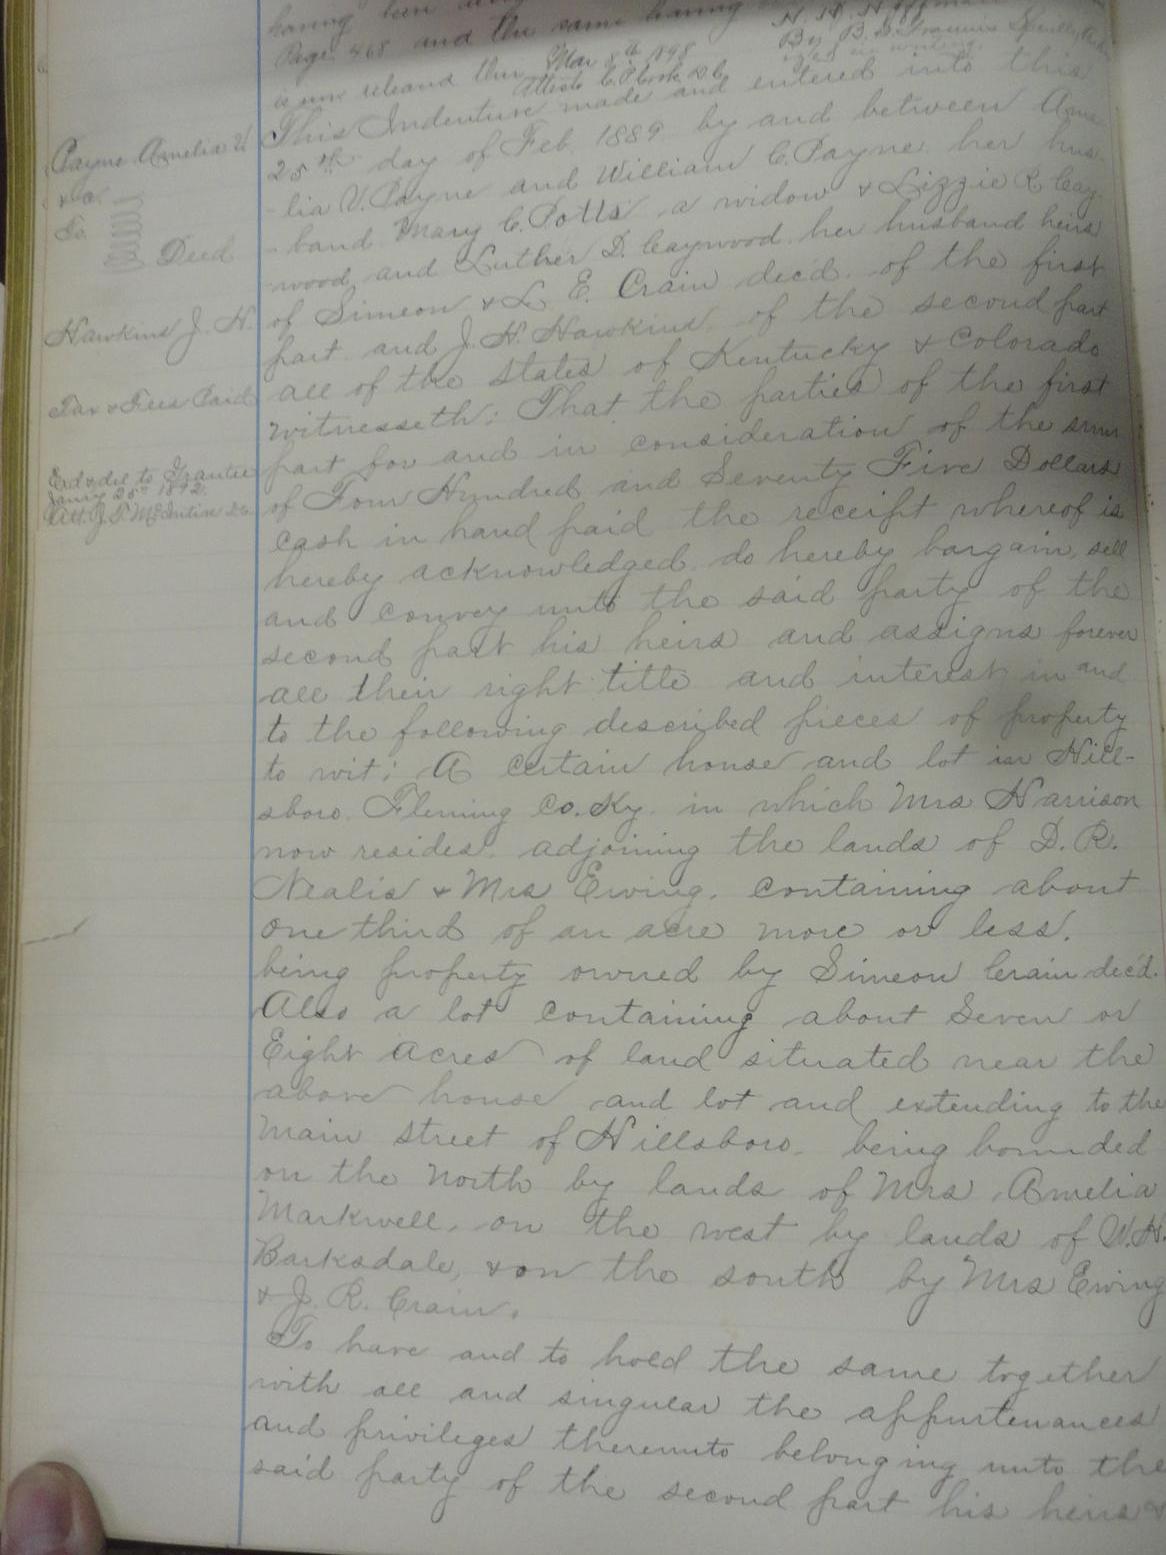 having been
Page 468 and the same having
H. H. Hoffman
is now released this Mar 8th 1898 By B. S.
Atteste C. P. Cook D.C.
Payne Amelia V.
&c.
To
Deed
Hawkins J. H.
Tax & Fees Paid
Exd & del to Grantee
Jany 25th 1892
Att. J. P. McIntire D.C.
This Indenture made and entered into this
25th day of Feb. 1889 by and between Ame-
-lia V. Payne and William C. Payne her hus-
-band Mary C. Potts a widow & Lizzie R Cay-
wood and Luther D. Caywood her husband heirs
of Simeon & L. E. Crain dec'd. of the first
part and J. H. Hawkins of the second part
all of the States of Kentucky & Colorado
witnesseth: That the parties of the first
part for and in consideration of the sum
of Four Hundred and Seventy Five Dollars
cash in hand paid the receipt whereof is
hereby acknowledged do hereby bargain, sell
and convey unto the said party of the
second part his heirs and assigns forever
all their right title and interest in and
to the following described pieces of property
to wit: A certain house and lot in Hill-
sboro Fleming Co. Ky. in which Mrs Harrison
now resides, adjoining the lands of D. R.
Nealis & Mrs Ewing, containing about
one third of an acre more or less,
being property owned by Simeon Crain dec'd.
Also a lot containing about Seven or
Eight acres of land situated near the
above house and lot and extending to the
main street of Hillsboro, being bounded
on the north by lands of Mrs Amelia
Markwell, on the west by lands of W. H.
Barksdale, & on the south by Mrs Ewing
& J. R. Crain.
To have and to hold the same together
with all and singular the appurtenances
and privileges thereunto belonging unto the
said party of the second part his heirs &